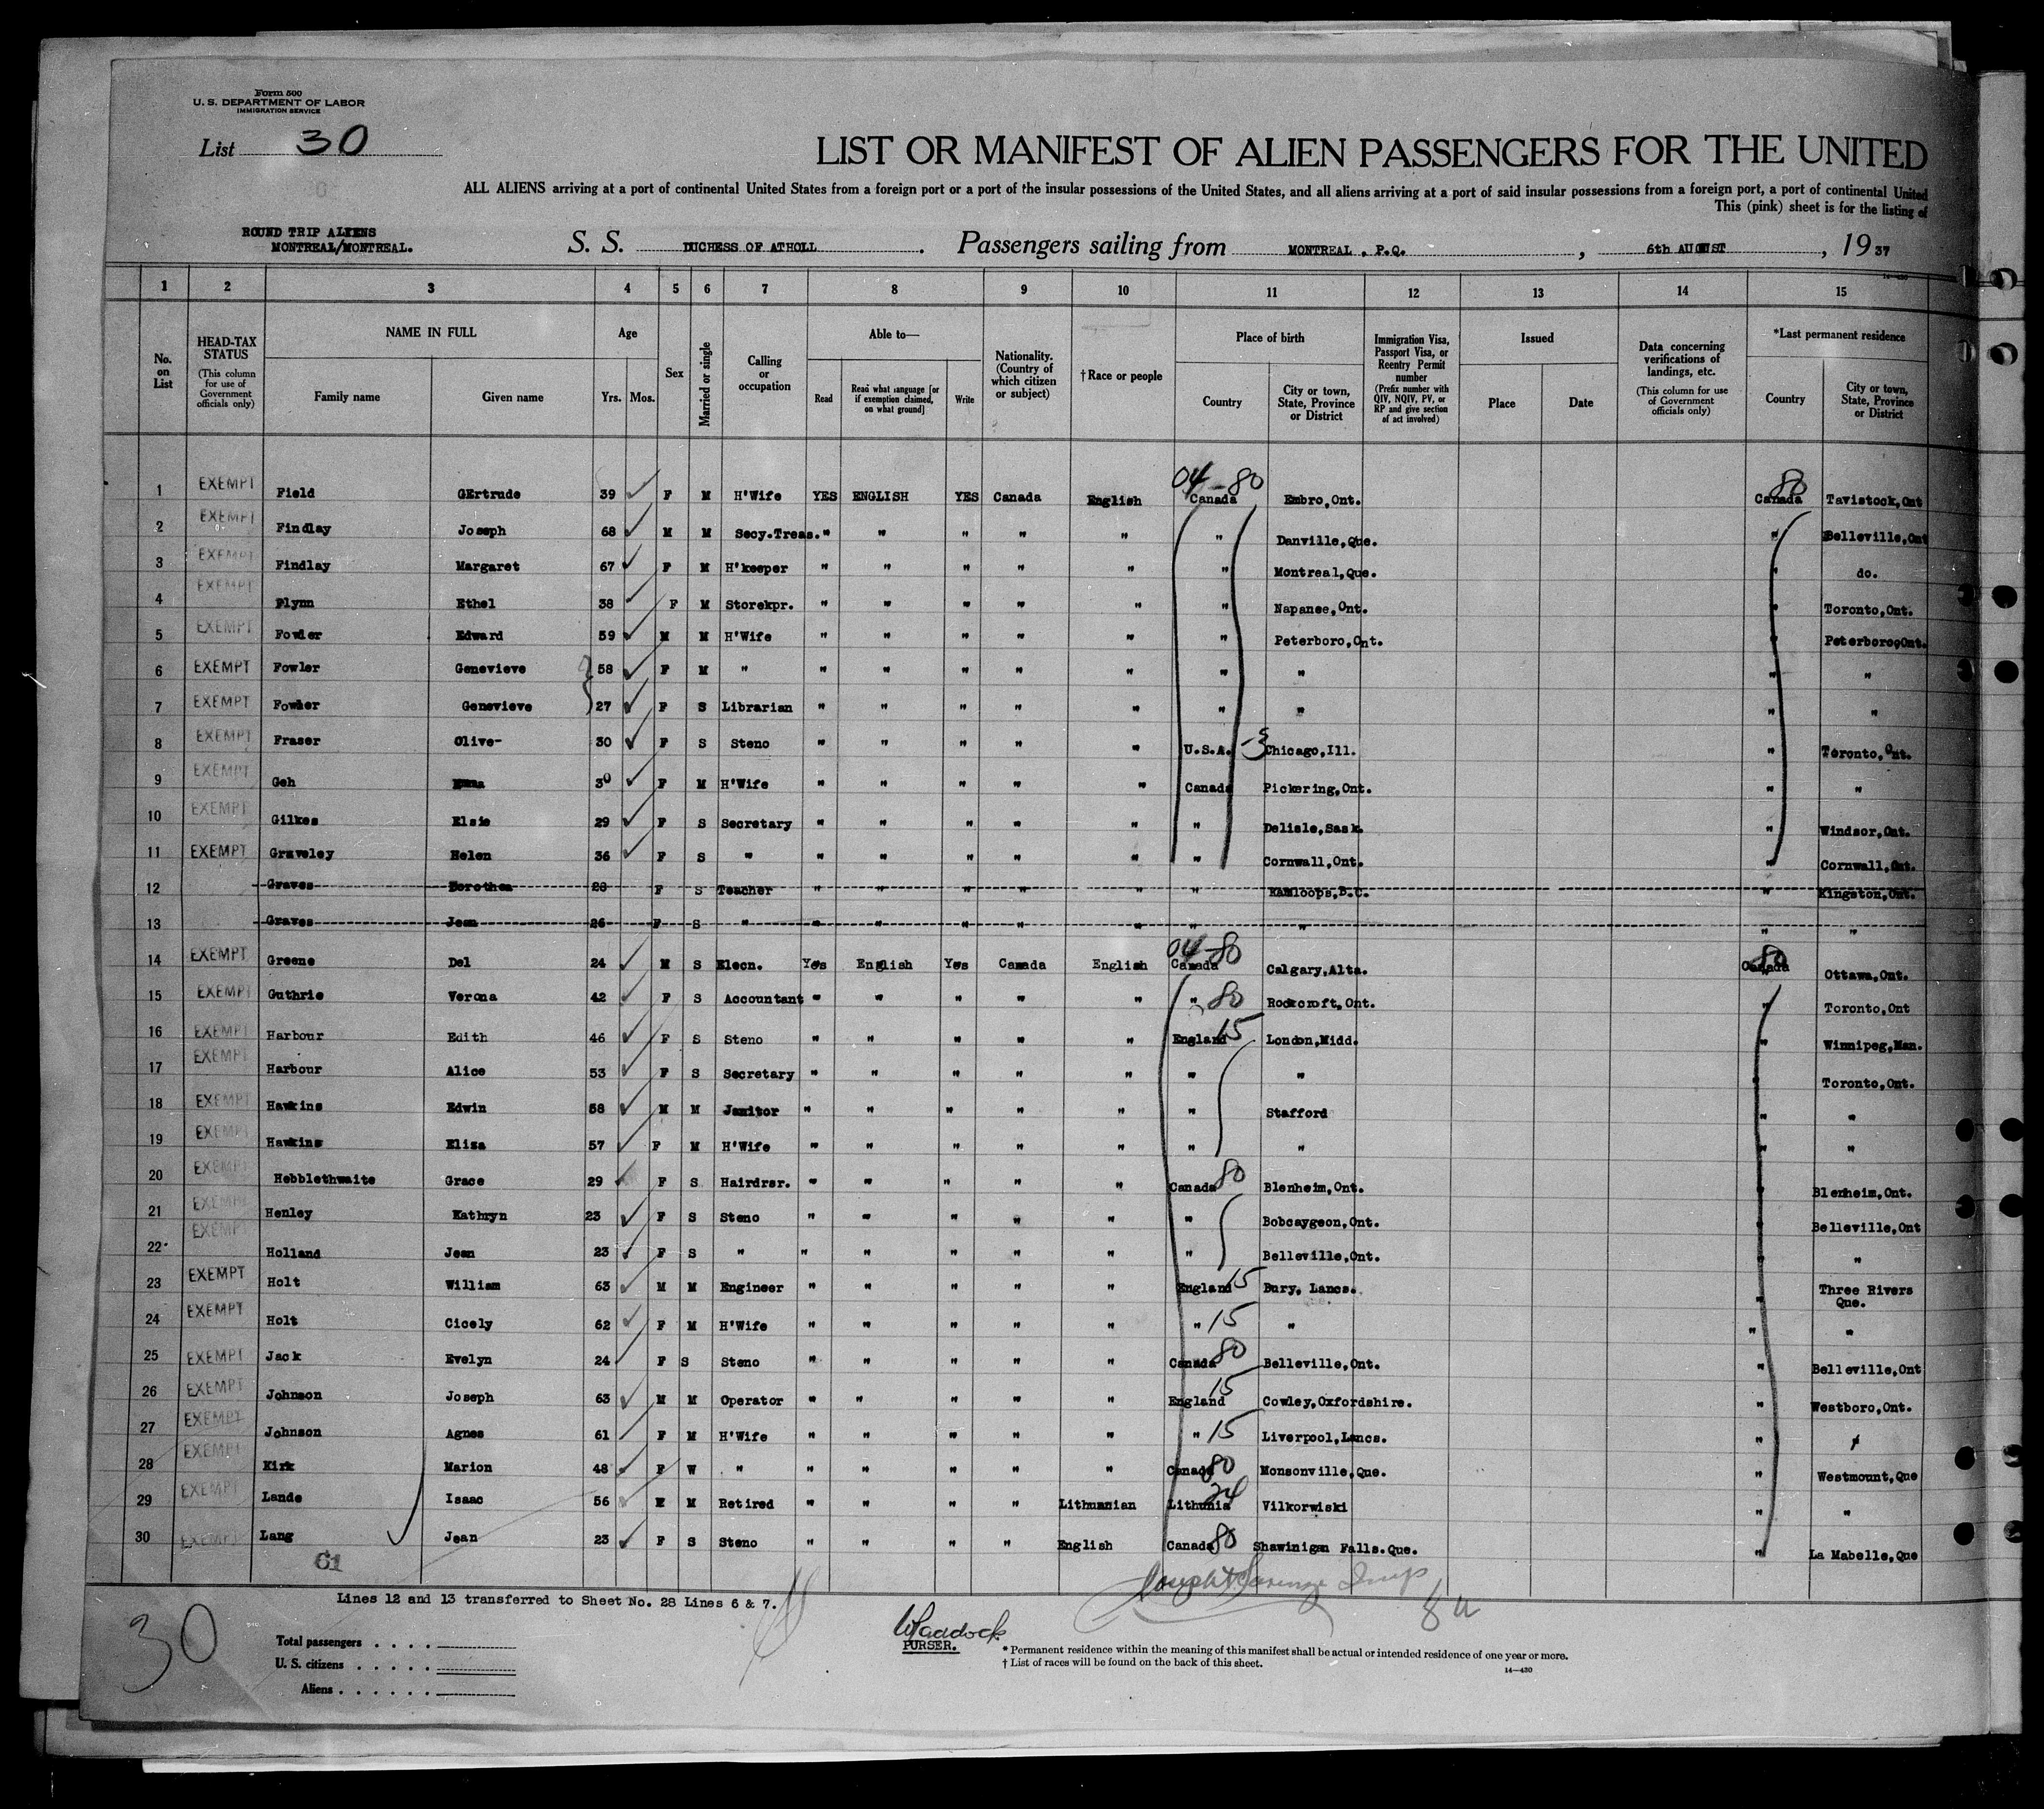 Form 500
U. S. DEPARTMENT OF LABOR
IMMIGRATION SERVICE
List 30
LIST OR MANIFEST OF ALIEN PASSENGERS FOR THE UNITED
ALL ALIENS arriving at a port of continental United States from a foreign port or a port of the insular possessions of the United States, and all aliens arriving at a port of said insular possessions from a foreign port, a port of continental United
This (pink) sheet is for the listing of
ROUND TRIP ALIENS
MONTREAL/MONTREAL.
S. S. DUCHESS OF ATHOLL. Passengers sailing from MONTREAL, P.Q., 6th AUGUST, 1937
14-430
1 2 3 4 5 6 7 8 9 10 11 12 13 14 15
No. on List
HEAD-TAX STATUS (This column for use of Government officials only)
NAME IN FULL
Family name Given name
Age
Yrs. Mos.
Sex
Married or single
Calling or occupation
Able to—
Read
Read what language [or if exemption claimed, on what ground]
Write
Nationality. (Country of which citizen or subject)
†Race or people
Place of birth
Country
City or town, State, Province or District
Immigration Visa, Passport Visa, or Reentry Permit number (Prefix number with QIV, NQIV, PV, or RP and give section of act involved)
Issued
Place Date
Data concerning verifications of landings, etc. (This column for use of Government officials only)
*Last permanent residence
Country
City or town, State, Province or District
1 EXEMPT Field GErtrude 39 F M H'Wife YES ENGLISH YES Canada English 04-80 Canada Embro,Ont. 80 Canada Tavistock,Ont
2 EXEMPT Findlay Joseph 68 M M Secy.Treas. " " " " " " Danville,Que. " Belleville,Ont
3 EXEMPT Findlay Margaret 67 F M H'keeper " " " " " " Montreal,Que. " do.
4 EXEMPT Flynn Ethel 38 F M Storekpr. " " " " " " Napanee,Ont. " Toronto,Ont.
5 EXEMPT Fowler Edward 59 M M H'Wife " " " " " " Peterboro,Ont. " Peterboro,Ont.
6 EXEMPT Fowler Genevieve 58 F M " " " " " " " " " "
7 EXEMPT Fowler Genevieve 27 F S Librarian " " " " " " " " "
8 EXEMPT Fraser Olive- 30 F S Steno " " " " " U.S.A. Chicago,Ill. " Toronto,Ont.
9 EXEMPT Geh 30 F M H'Wife " " " " " Canada Pickering,Ont. " "
10 EXEMPT Gilkes Elsie 29 F S Secretary " " " " " " Delisle,Sask. " Windsor,Ont.
11 EXEMPT Graveley Helen 36 F S " " " " " " " Cornwall,Ont. " Cornwall,Ont.
12 Graves Dorothea 28 F S Teacher " " " " " " Kamloops,B.C. " Kingston,Ont.
13 Graves Jean 26 F S " " " " " " " " " "
14 EXEMPT Greene Del 24 M S Elecn. Yes English Yes Canada English 04-80 Canada Calgary,Alta. 80 Canada Ottawa,Ont.
15 EXEMPT Guthrie Verona 42 F S Accountant " " " " " " 80 Rockcroft,Ont. " Toronto,Ont
16 EXEMPT Harbour Edith 46 F S Steno " " " " " England 15 London,Midd. " Winnipeg,Man.
17 EXEMPT Harbour Alice 53 F S Secretary " " " " " " " " Toronto,Ont.
18 EXEMPT Hawkins Edwin 58 M M Janitor " " " " " " Stafford " "
19 EXEMPT Hawkins Eliza 57 F M H'Wife " " " " " " " " "
20 EXEMPT Hebblethwaite Grace 29 F S Hairdrsr. " " " " " Canada 80 Blenheim,Ont. " Blenheim,Ont.
21 EXEMPT Henley Kathryn 23 F S Steno " " " " " " Bobcaygeon,Ont. " Belleville,Ont
22 EXEMPT Holland Jean 23 F S " " " " " " " Belleville,Ont. " "
23 EXEMPT Holt William 63 M M Engineer " " " " " England 15 Bury, Lancs. " Three Rivers Que.
24 EXEMPT Holt Cicely 62 F M H'Wife " " " " " " 15 " " "
25 EXEMPT Jack Evelyn 24 F S Steno " " " " " Canada 80 Belleville,Ont. " Belleville,Ont
26 EXEMPT Johnson Joseph 63 M M Operator " " " " " England 15 Cowley,Oxfordshire. " Westboro,Ont.
27 EXEMPT Johnson Agnes 61 F M H'Wife " " " " " " 15 Liverpool,Lancs. " "
28 EXEMPT Kirk Marion 48 F W " " " " " " Canada 80 Monsonville,Que. " Westmount,Que
29 EXEMPT Lande Isaac 56 M M Retired " " " " Lithuanian Lithunia 24 Vilkorwiski " "
30 EXEMPT Lang Jean 23 F S Steno " " " " English Canada 80 Shawinigan Falls.Que. " La Mabelle,Que
61
Lines 12 and 13 transferred to Sheet No. 28 Lines 6 & 7.
30
Total passengers
U. S. citizens
Aliens
PURSER.
* Permanent residence within the meaning of this manifest shall be actual or intended residence of one year or more.
† List of races will be found on the back of this sheet.
14—430